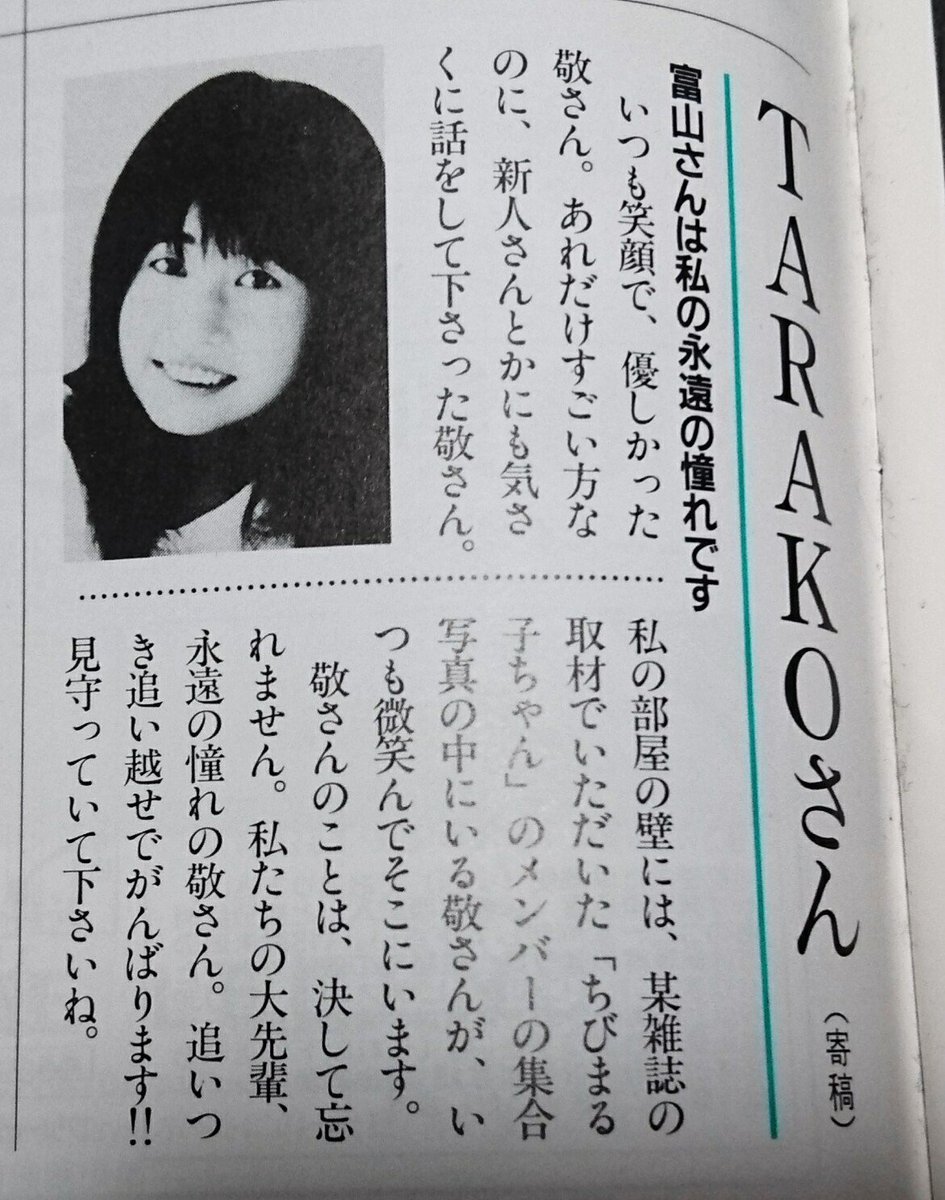 TARAKOさん
(寄稿)
富山さんは私の永遠の憧れです
いつも笑顔で、優しかった
敬さん。あれだけすごい方な
のに、新人さんとかにも気さ
くに話をして下さった敬さん。
私の部屋の壁には、某雑誌の
取材でいただいた「ちびまる
子ちゃん」のメンバーの集合
写真の中にいる敬さんが、い
つも微笑んでそこにいます。
敬さんのことは、決して忘
れません。私たちの大先輩、
永遠の憧れの敬さん。追いつ
き追い越せでがんばります!!
見守っていて下さいね。